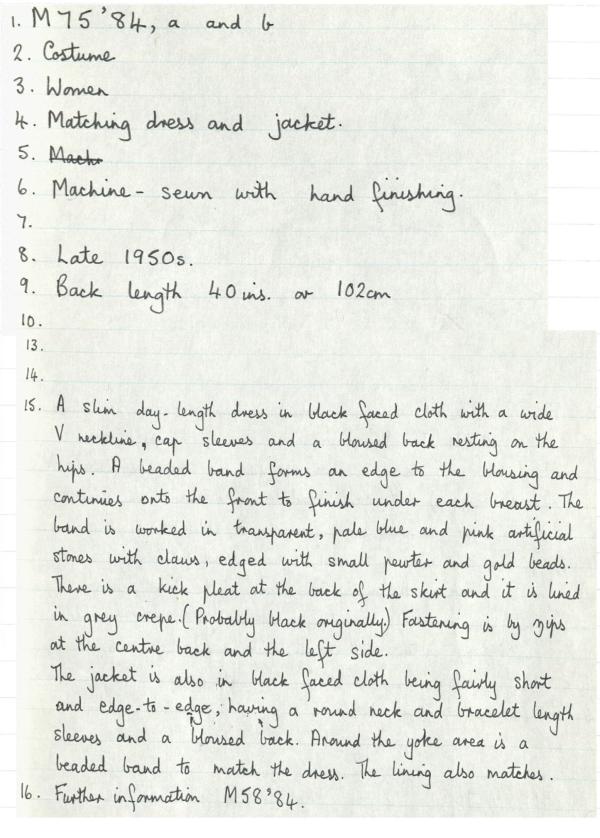 1. M75'84, a and b
2. Costume
3. Women
4. Matching dress and jacket.
5. Mach
6. Machine - sewn with hand finishing.
7.
8. Late 1950s.
9. Back length 40 ins. or 102cm
10.
13.
14.
15. A slim day-length dress in black faced cloth with a wide
V neckline, cap sleeves and a bloused back resting on the
hips. A beaded band forms an edge to the blousing and
continues onto the front to finish under each breast. The
band is worked in transparent, pale blue and pink artificial
stones with claws, edged with small pewter and gold beads.
There is a kick pleat at the back of the skirt and it is lined
in grey crepe. (Probably black originally.) Fastening is by zips
at the centre back and the left side.
The jacket is also in black faced cloth being fairly short
and edge-to-edge, having a round neck and bracelet length
sleeves and a bloused back. Around the yoke area is a
beaded band to match the dress. The lining also matches.
16. Further information M58'84.